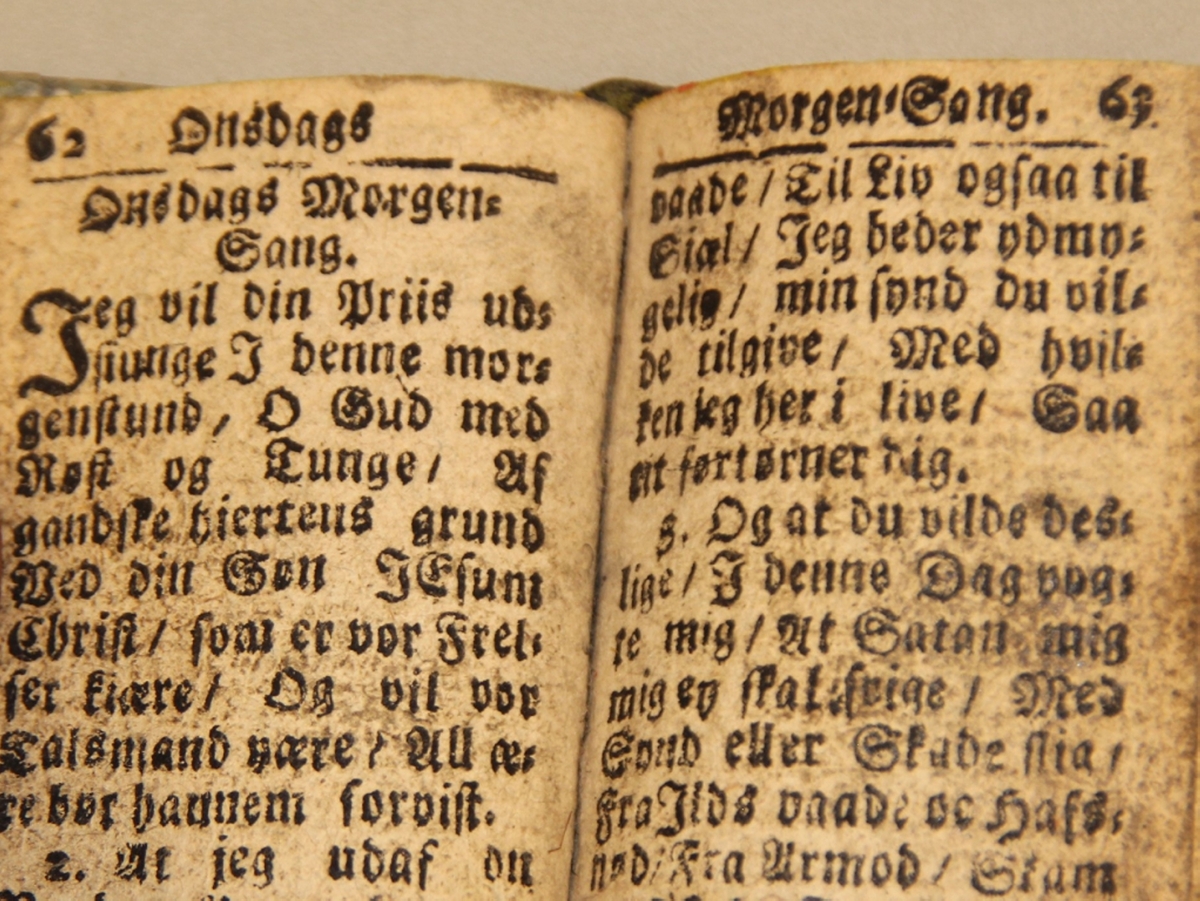 62 Onsdags
Onsdags Morgen⸗
Sang.
Jeg vil din Priis ud⸗
siunge J denne mor⸗
genstund, O Gud med
Røst og Tunge / Af
gandske hiertens grund
Ved din Søn JEsum
Christ / som er vor Frel⸗
ser kiære / Og vil vor
Talsmand være / All æ⸗
re bør hannem forvist.
2. At jeg udaf
Morgen⸗Sang. 63
vaade / Til Liv ogsaa til
Siæl / Jeg beder ydmy⸗
gelig / min synd du vil⸗
de tilgive / Med hvil⸗
ken jeg her i live / Saa
fortørner dig.
3. Og at du vilde des⸗
lige / J denne Dag vog⸗
te mig / At Satan mig
mig ey skal svige / Med
Synd eller Skade slig /
Fra Jlds vaade oc Hafs⸗
nød / Fra Armod / Skam